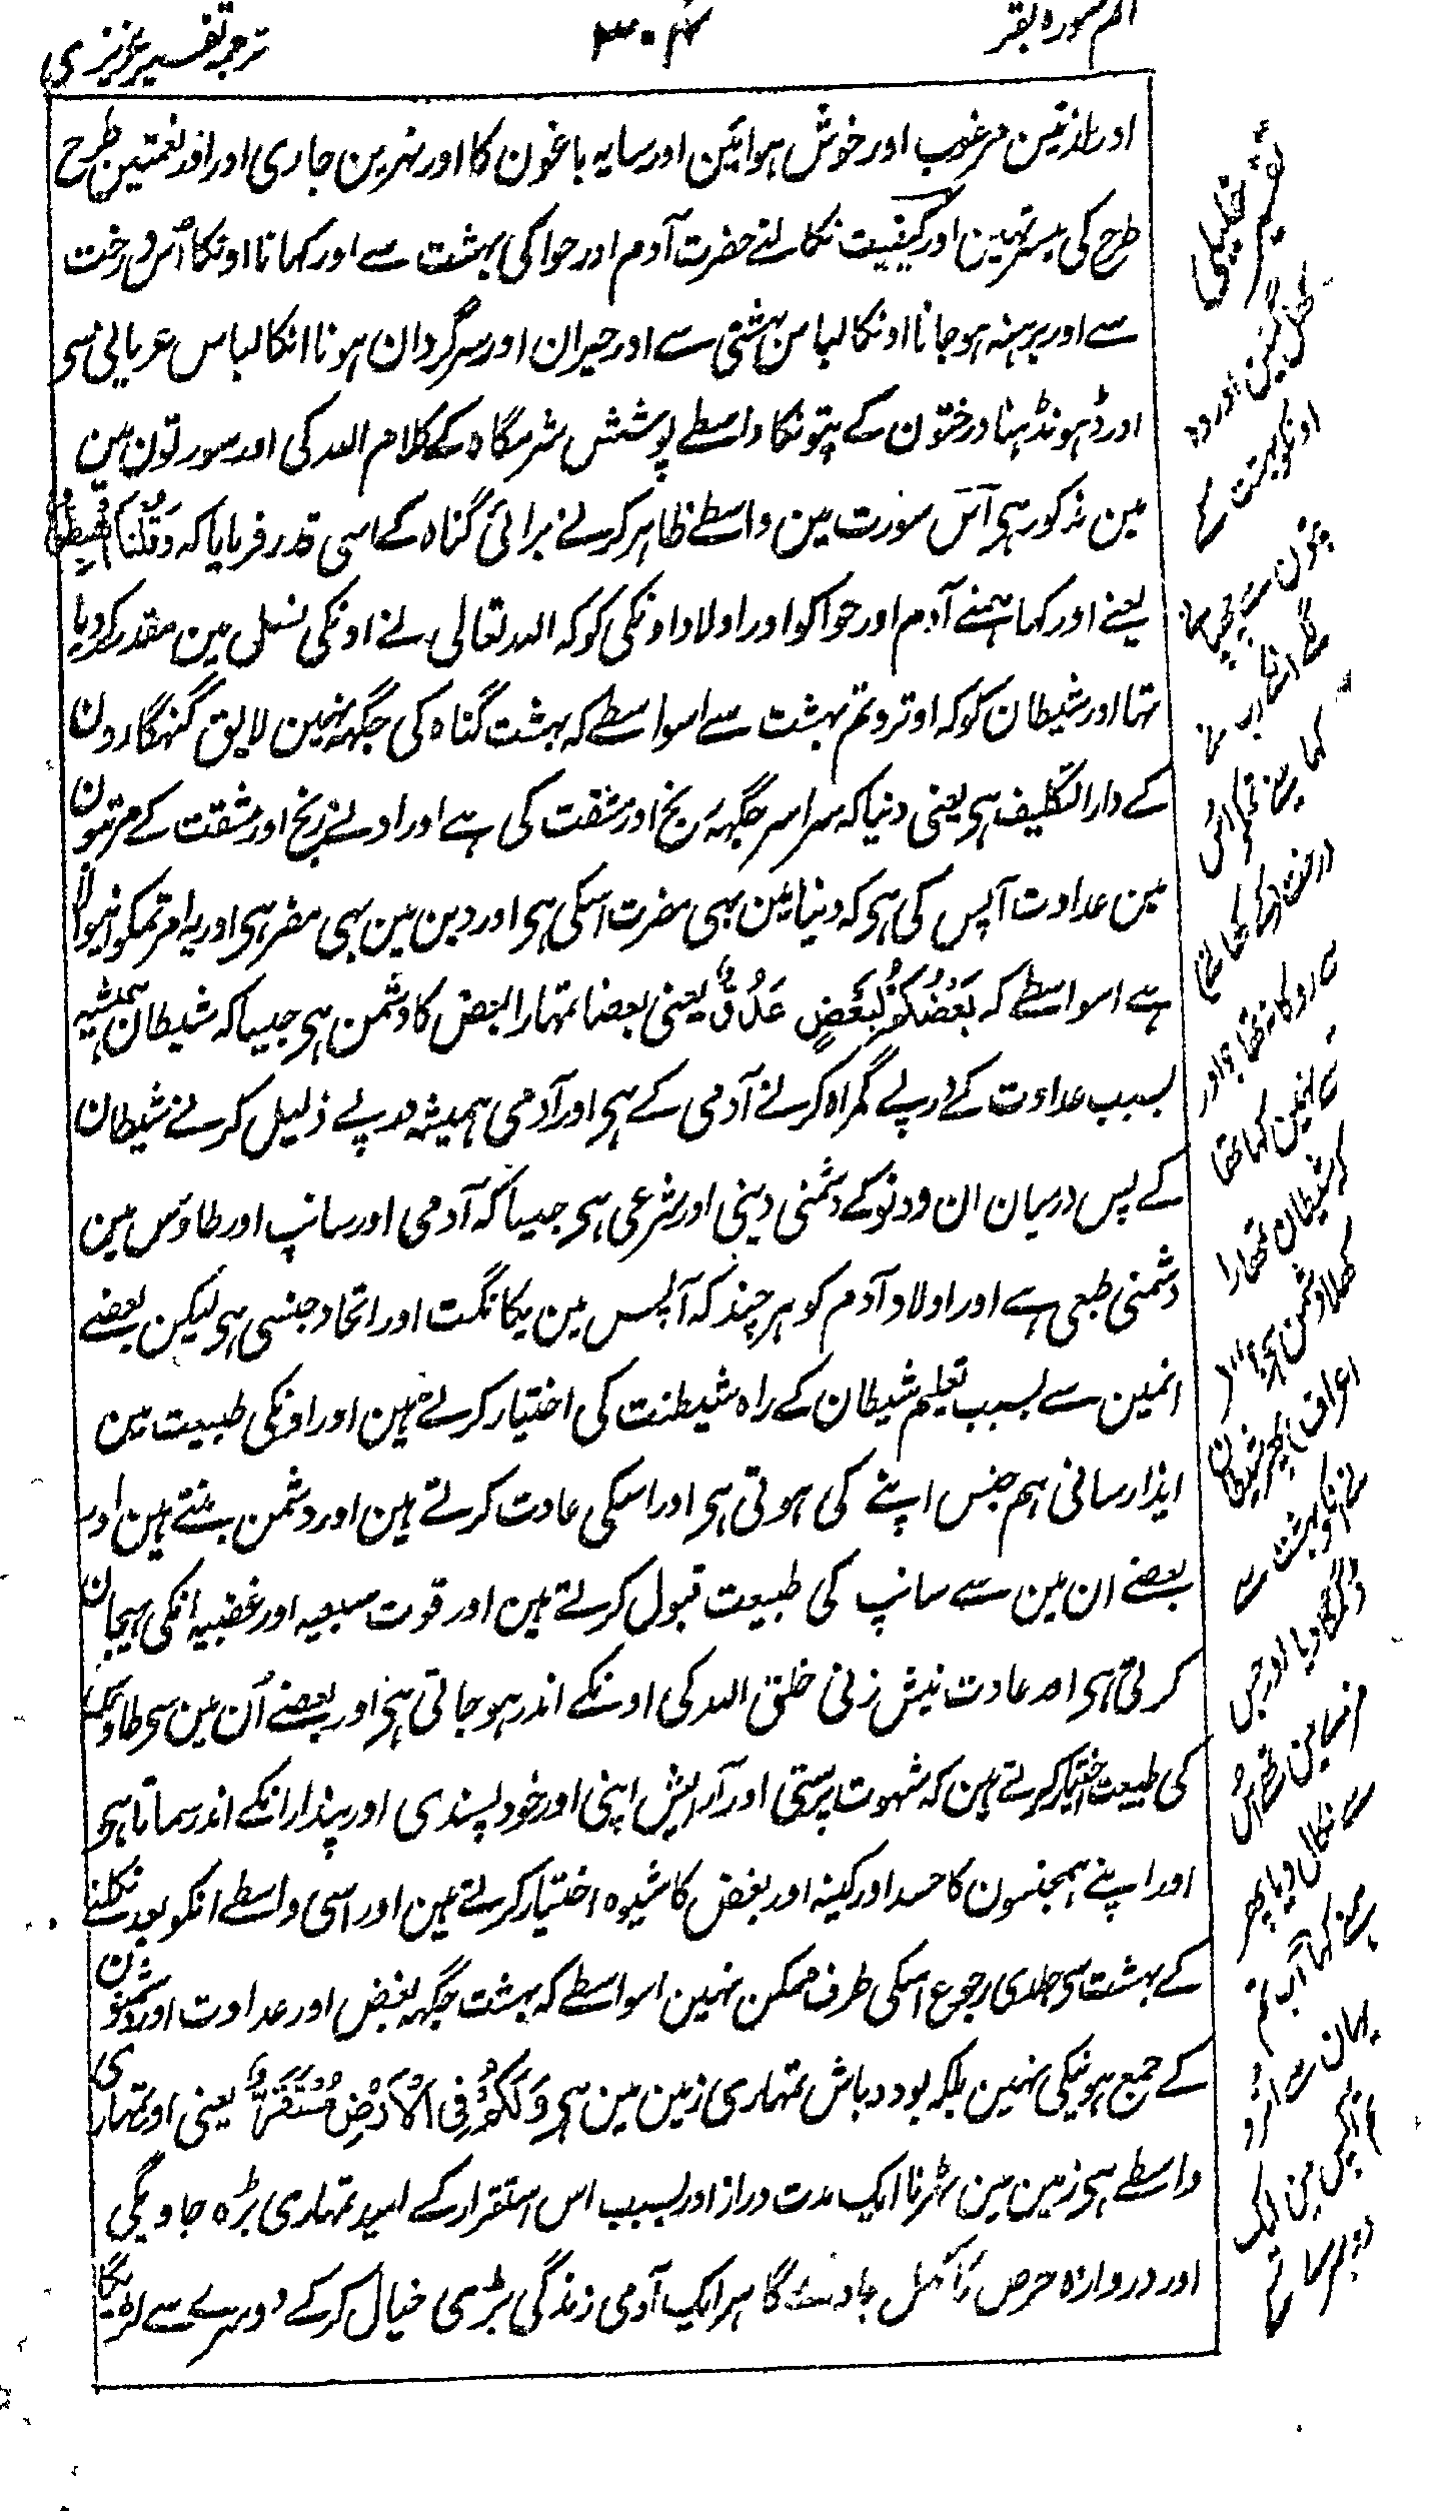 الم سوره بقر
۳۰۴
ترجمہ تفسیر عزیزی
اور لذتین مرغوب اور خوش ہوائین اور سایہ باغون کا اور نہرین جاری اور اور نعمتین طرح
طرح کی میسر تہین اور کیفیت نکالنے حضرت آدم اور حوا کی بہشت سے اور کہانا اونکا اُس درخت
سے اور برہنہ ہو جانا اونکا لباس بہشتی سے اور حیران اور سرگردان ہونا انکا لباس عریانی سی
اور ڈہونڈہنا درختون کے پتونکا واسطے پوشش شرمگاہ کے کلام اللہ کی اور سورتون مین
مین مذکور ہی اس سورت مین واسطے ظاہر کرنے برائی گناہ کے اسی قدر فرمایا کہ وَقُلْنَا اهْبِطُوْا
یعنے اور کہا ہمنے آدم اور حوا کو اور اولاد اونکی کو کہ اللہ تعالی نے اونکی نسل مین مقدر کر دیا
تہا اور شیطان کو کہ اوترو تم بہشت سے اسواسطے کہ بہشت گناہ کی جگہہ نہین لایق گنہگارون
کے دار التکلیف ہی یعنی دنیا کہ سراسر جگہہ رنج اور مشقت کی ہے اور ادنے رنج اور مشقت کے مرتبون
مین عداوت آپس کی ہی کہ دنیا مین بہی مضرت اسکی ہی اور دین مین بہی مضر ہی اور یہ امر تمکو ہونیوالا
ہے اسواسطے کہ بَعْضُكُمْ لِبَعْضٍ عَدُوٌّ یعنی بعضا تمہارا بعض کا دشمن ہی جیسا کہ شیطان ہمیشہ
بسبب عداوت کے درپے گمراہ کرنے آدمی کے ہی اور آدمی ہمیشہ درپے ذلیل کرنے شیطان
کے پس درمیان ان دونو کے دشمنی دینی اور شرعی ہی جیسا کہ آدمی اور سانپ اور طاؤس مین
دشمنی طبعی ہے اور اولاد آدم کو ہر چند کہ آپس مین یگانگت اور اتحاد جنسی ہی لیکن بعضے
انمین سے بسبب تعلیم شیطان کے راہ شیطنت کی اختیار کرتے ہین اور اونکی طبیعت مین
ایذا رسانی ہم جنس اپنے کی ہوتی ہی اور اسکی عادت کرتے ہین اور دشمن بنتے ہین اور
بعضے ان مین سے سانپ کی طبیعت قبول کرتے ہین اور قوت سبعیہ اور غضبیہ انکی ہیجان
کرتی ہی اور عادت نیش زنی خلق اللہ کی اونکے اندر ہو جاتی ہی اور بعضے اُن مین سی طاؤس
کی طبیعت اختیار کرتے ہین کہ شہوت پرستی اور آرایش اپنی اور خود پسندی اور پندار انکے اندر سماتا ہی
اور اپنے ہمجنسون کا حسد اور کینہ اور بغض کا شیوہ اختیار کرتے ہین اور اسی واسطے انکو بعد نکلنے
کے بہشت سی جلدی رجوع اسکی طرف ممکن نہین اسواسطے کہ بہشت جگہہ بغض اور عداوت اور دشمنون
کے جمع ہونیکی نہین بلکہ بود و باش تمہاری زمین مین ہی وَلَكُمْ فِی الْاَرْضِ مُسْتَقَرٌّ یعنی اور تمہاری
واسطے ہی زمین مین ٹہرنا ایک مدت دراز اور بسبب اس استقرار کے امید تمہاری بڑہ جاویگی
اور دروازہ حرص کا کھل جاوے گا ہر ایک آدمی زندگی بڑی خیال کر کے دوسرے سے لڑیگا